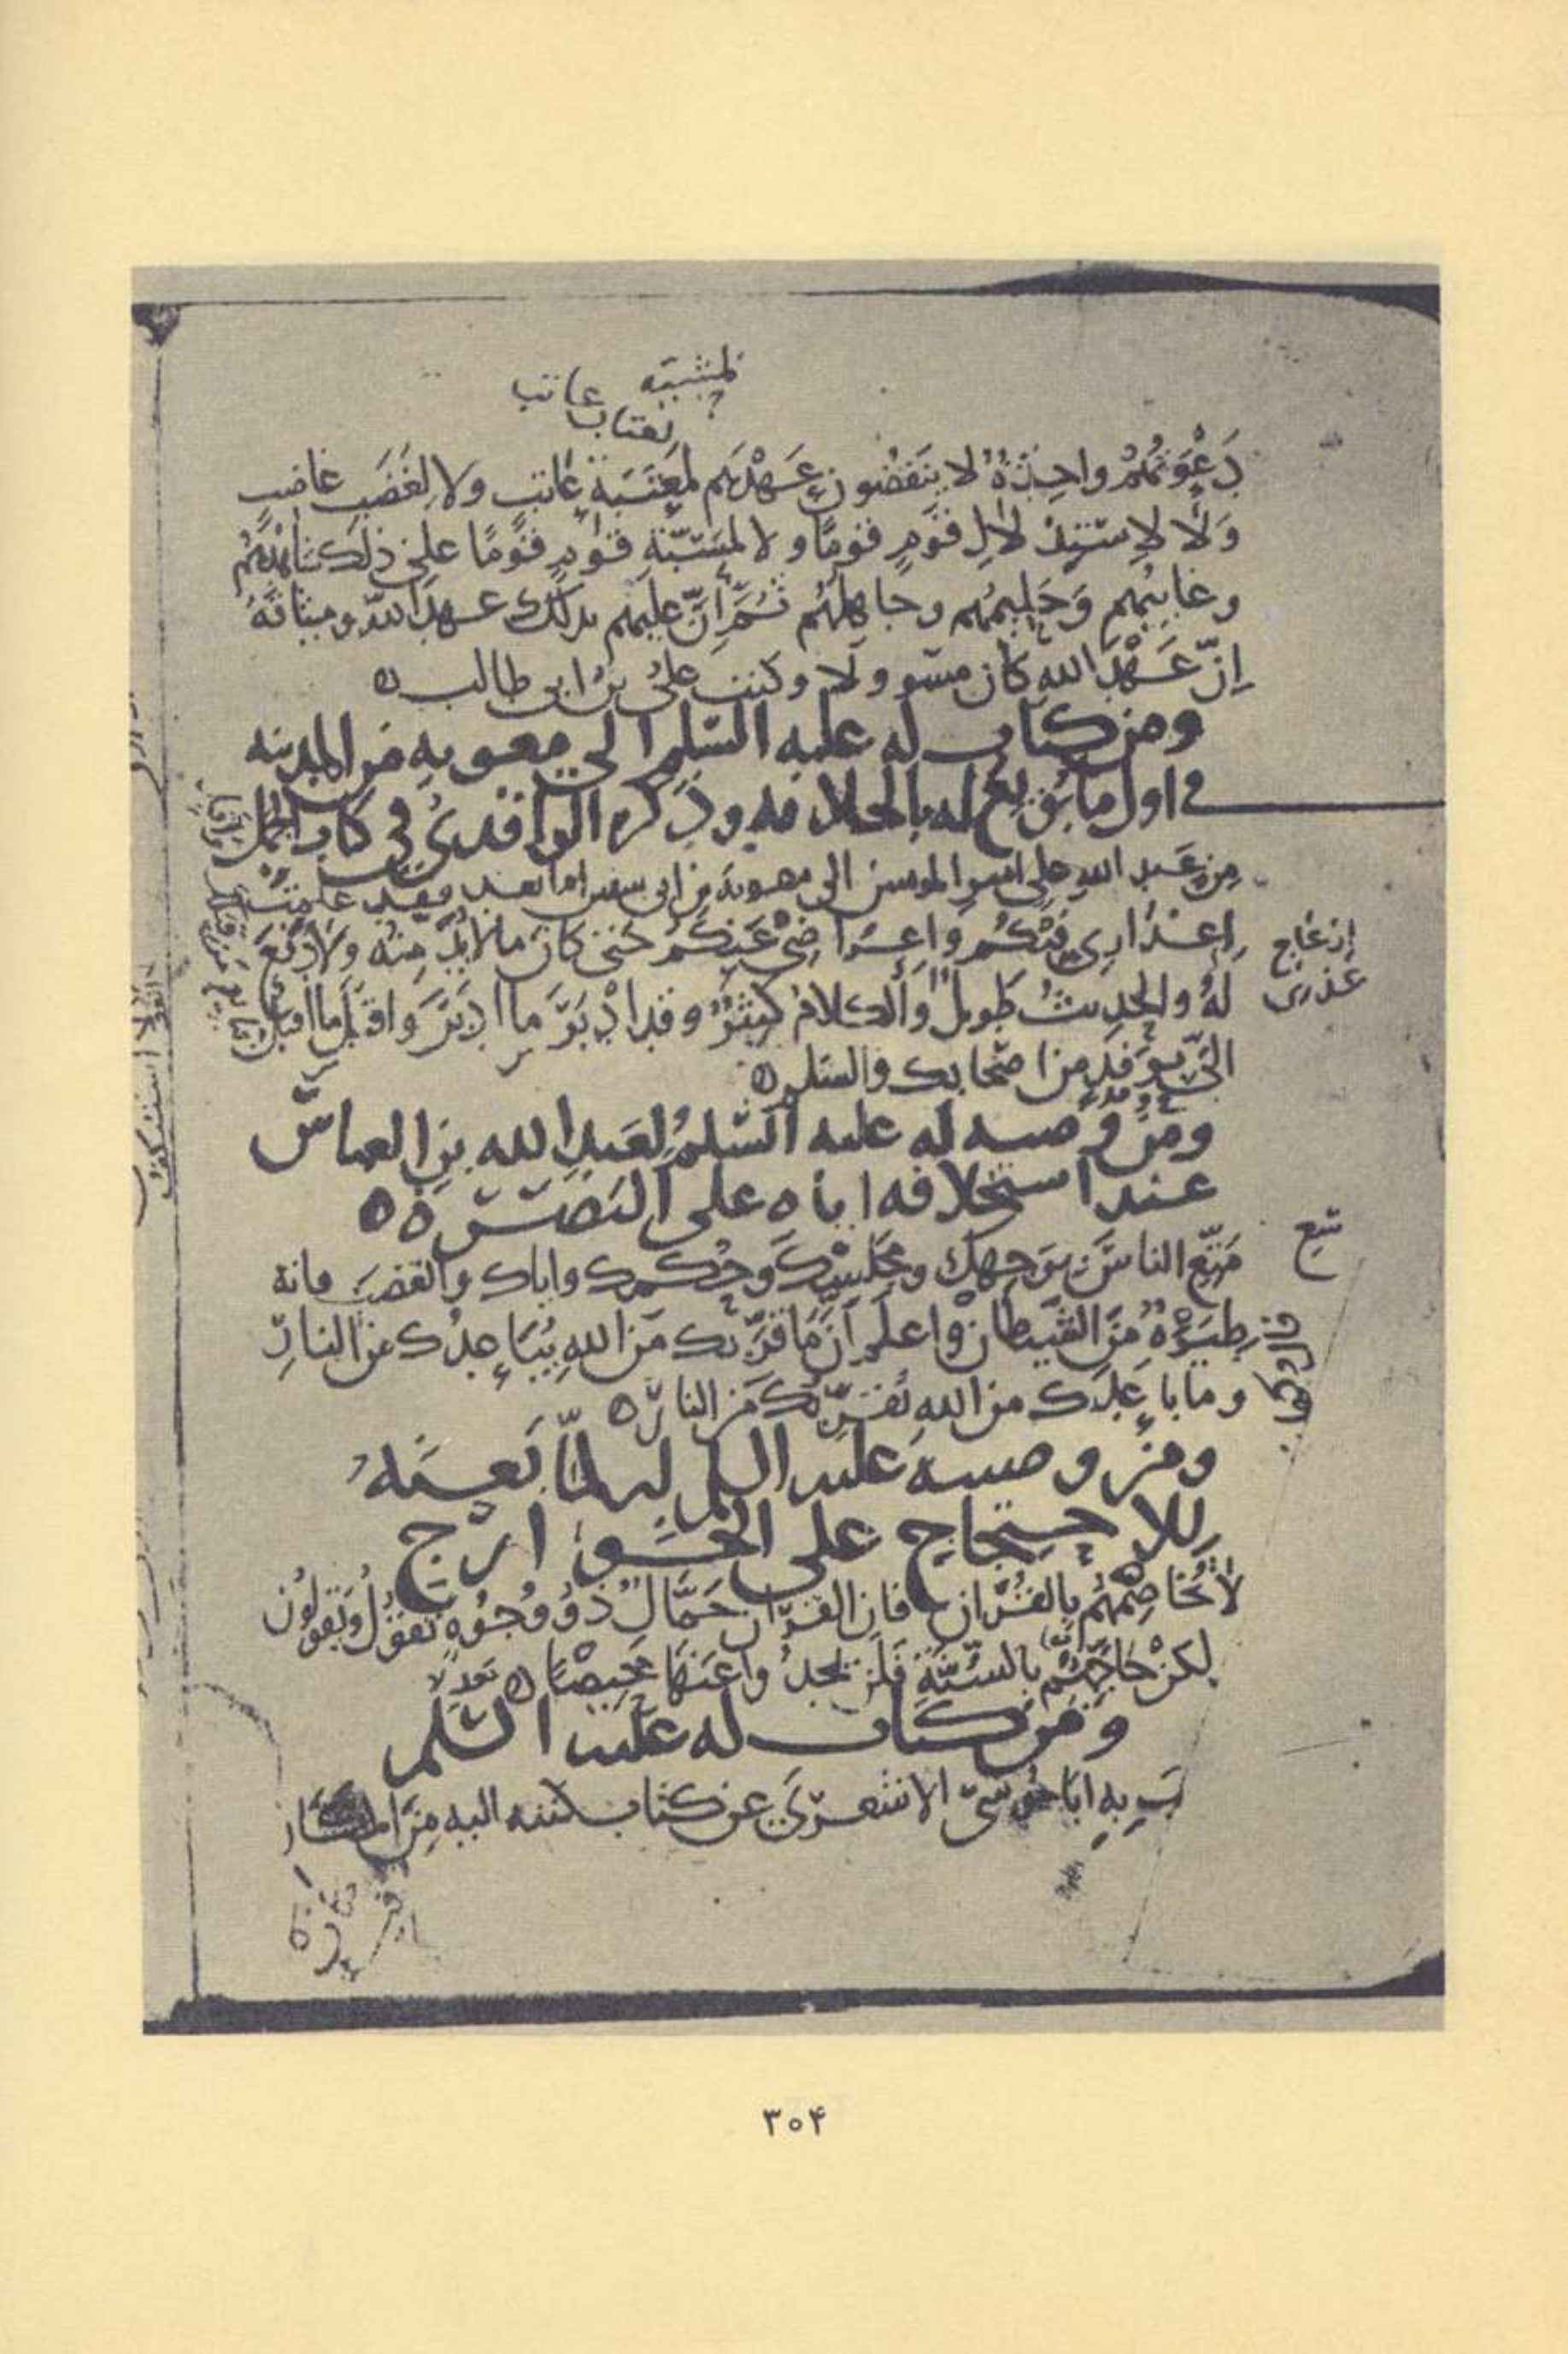 لمشيئة عاتب
لعتاب
دَعْوَتُهُمْ واحِدَةٌ لا يَنقُضُونَ عَهْدَهُم لمَعْتَبَةِ عَاتِبٍ ولا لِغَضَبِ غاضبٍ
وَلا لاِسْتِذْلالِ قَومٍ قومًا ولا لمَسَبَّةِ قومٍ قومًا على ذلك شاهدُهُم
وغايبُهم وَحَليمُهم وجاهلُهُم ثُمَّ إنَّ عليهم بذلك عهدَ الله وميثاقَهُ
إنّ عَهْدَ الله كان مسوولا وكتب علىُ بنُ ابى طالب ه
ومن كتاب له عليه السّلم الى معويه من المدينه
فى اول ما بُويِعَ له بالخلافه وذكره الواقدىُ فى كتاب الجمل
مِن عَبدِ الله على امير المومنين الى معوية بن ابى سفين اما بعد فقد علمتَ
اِعذارِى فيكُم وَاِعراضِى عَنكُم حتى كانَ ما لا بُدَّ مِنهُ وَلا دَفعَ
لهُ والحديثُ طَويلٌ والكلامُ كثيرٌ وقد ادْبَرَ ما ادبَرَ واقبَلَ ما اقبل
الىَّ فى وَفدٍ من اصحابك والسلم ه
ومن وصيه له عليه السّلمُ لعَبدِ الله بنِ العباس
عند استخلافه اياه على البَصرَة ه
تبع
مَتِّعِ الناسَ بوَجهِكَ ومَجلِسِكَ وَحُكمِك واياك والغضبَ فانه
طَيرَةٌ مِنَ الشيطان واعلَم أنَّ ما قرَّبك مِنَ اللهِ يُباعِدُك من النارِ
وما باعَدَك من اللهِ يُقَرِّبُك مِن النار ه
ومن وصيته عليه السلم له لمّا بَعثَهُ
لِلاحتِجاجِ على الخوارج
لا تُخاصِمْهُم بالقُرآنِ فان القرآنَ حَمَّالٌ ذُو وُجُوهٍ تقولُ ويَقولون
لكنْ حاجِّهُم بالسُنَّةِ فَلَن يجدوا عَنها مَحِيصًا ه
ومِن كتاب له عليه السّلم
ابا موسى الاشعرىَّ عن كتاب كتبه اليه مِن المكان
إزعاج
عذرى
٣٠۴